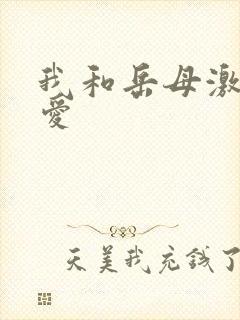 我和岳母激
爱
天美我充钱了